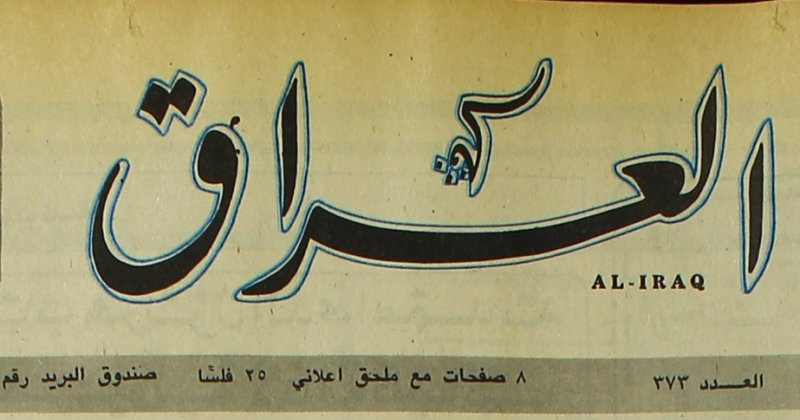 العراق
AL-IRAQ
العـــدد ٣٧٣ ٨ صفحات مع ملحق اعلاني ٢٥ فلسًا صندوق البريد رقم